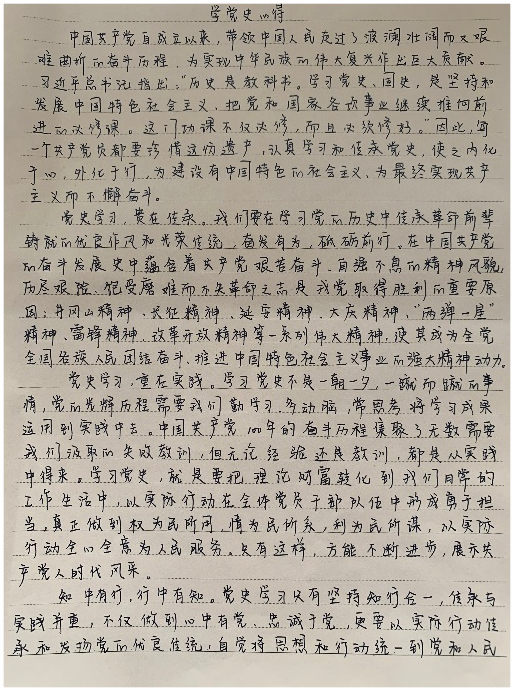 学党史心得
中国共产党自成立以来，带领中国人民走过了波澜壮阔而又艰
难曲折的奋斗历程，为实现中华民族的伟大复兴作出巨大贡献。
习近平总书记指出："历史是教科书。学习党史、国史，是坚持和
发展中国特色社会主义、把党和国家各项事业继续推向前
进的必修课。这门功课不仅必修，而且必须修好。"因此，每
一个共产党员都要珍惜这份遗产，认真学习和传承党史，使之内化
于心，外化于行，为建设有中国特色的社会主义、为最终实现共产
主义而不懈奋斗。
党史学习，贵在传承。我们要在学习党的历史中传承革命前辈
铸就的优良作风和光荣传统，奋发有为，砥砺前行。在中国共产党
的奋斗发展史中蕴含着共产党艰苦奋斗、自强不息的精神风貌，
历尽艰险、饱受磨难而不失革命之志是我党取得胜利的重要原
因；井冈山精神、长征精神、延安精神、大庆精神、"两弹一星"
精神、雷锋精神、改革开放精神等一系列伟大精神，使其成为全党
全国各族人民团结奋斗、推进中国特色社会主义事业的强大精神动力。
党史学习，重在实践。学习党史不是一朝一夕，一蹴而蹴的事
情，党的光辉历程需要我们勤学习、多动脑，常思考将学习成果
运用到实践中去。中国共产党100年的奋斗历程集聚了无数需要
我们汲取的失败教训，但无论经验还是教训，都是从实践
中得来。学习党史，就是要把理论财富转化到我们日常的
工作生活中，以实际行动在全体党员干部队伍中形成勇于担
当。真正做到权为民所用，情为民所系，利为民所谋，以实际
行动全心全意为人民服务。只有这样，方能不断进步，展示共
产党人时代风采。
知中有行，行中有知。党史学习只有坚持知行合一，传承与
实践并重，不仅做到心中有党、忠诚于党，更要以实际行动传
承和发扬党的优良传统，自觉将思想和行动统一到党和人民